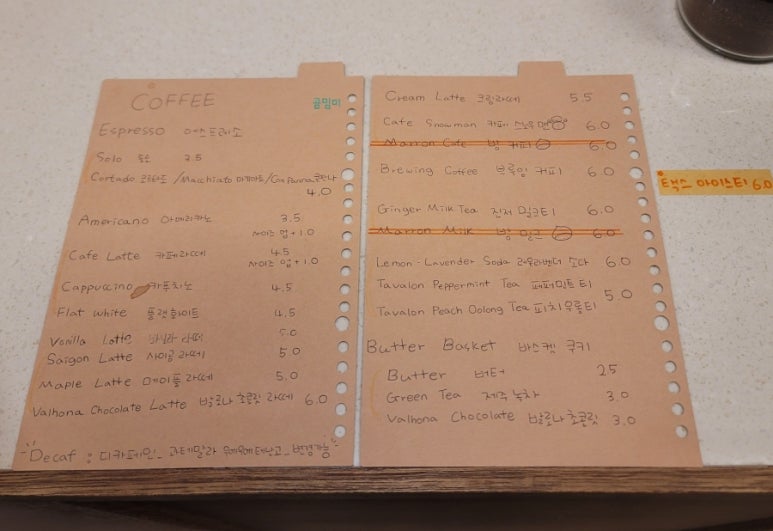 COFFEE 곰밍이
Espresso 에스프레소
Solo 솔로 2.5
Cortado 코르타도 /Macchiato 마끼아또/Con Panna 콘판나
4.0
Americano 아메리카노 3.5
사이즈 업 + 1.0
Cafe Latte 카페라떼 4.5
사이즈 업 + 1.0
Cappuccino 카푸치노 4.5
Flat white 플랫화이트 4.5
Vanilla Latte 바닐라 라떼 5.0
Saigon Latte 사이공 라떼 5.0
Maple Latte 메이플 라떼 5.0
Valhona Chocolate Latte 발로나 초콜릿 라떼 6.0
Decaf : 디카페인_ 과테말라 우에우에테난고_변경가능
Cream Latte 크림라떼 5.5
Cafe Snowman 카페 스노우맨 6.0
Marron Cafe 밤 커피 6.0
Brewing Coffee 브루잉 커피 6.0
Ginger Milk Tea 진저 밀크티 6.0
Marron Milk 밤 밀크 6.0
Lemon-Lavender Soda 레몬라벤더 소다 6.0
Tavalon Peppermint Tea 페퍼민트 티
5.0
Tavalon Peach Oolong Tea 피치우롱티
Butter Basket 바스켓 쿠키
Butter 버터 2.5
Green Tea 제주 녹차 3.0
Valhona Chocolate 발로나 초콜릿 3.0
아이스티 6.0